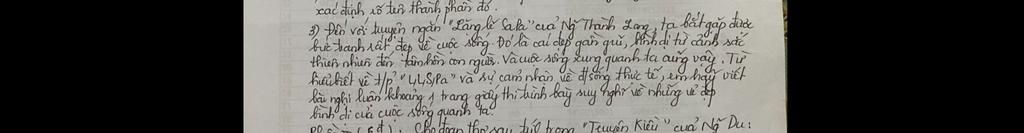 xác định rõ tên thành phần đó.
3) Đến với truyện ngắn "Lặng lẽ Sa Pa" của Ng Thành Long, ta bắt gặp được
bức tranh rất đẹp về cuộc sống. Đó là cái đẹp gần gũi, bình dị từ cảnh sắc
thiên nhiên đến tâm hồn con người. Và cuộc sống xung quanh ta cũng vậy. Từ
hiểu biết về t/p "LLSPa" và sự cảm nhận về đ/sống thực tế, em hãy viết
bài nghị luận khoảng 1 trang giấy thi trình bày suy nghĩ về những vẻ đẹp
bình dị của cuộc sống quanh ta.
Cho đoạn thơ sau trong "Truyện Kiều" của Ng Du: